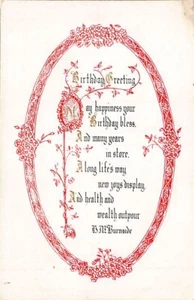 Birthday Greeting
May happiness your
Birthday bless.
And many years
in store.
Along life's way
new joys display.
And health and
wealth outpour
H.M. Burnside